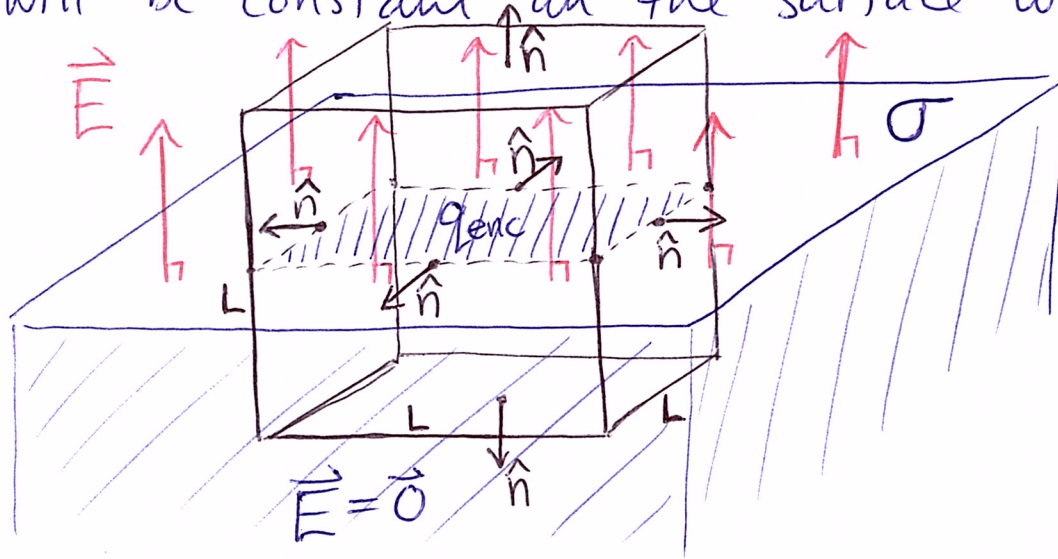 will be constant on the surface
n̂
E⃗
σ
n̂
n̂
q_enc
n̂
n̂
L
L
L
n̂
E⃗ = 0⃗